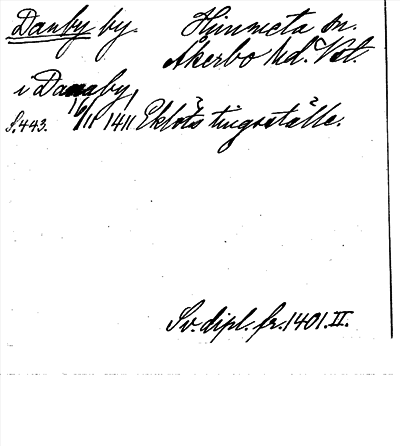 Danby by. Himmeta sn.
Åkerbo hd. Vst.
i Danaby,
S.443. 16/11 1411 Eklöts tingsställe.
Sv. dipl. fr. 1401. II.